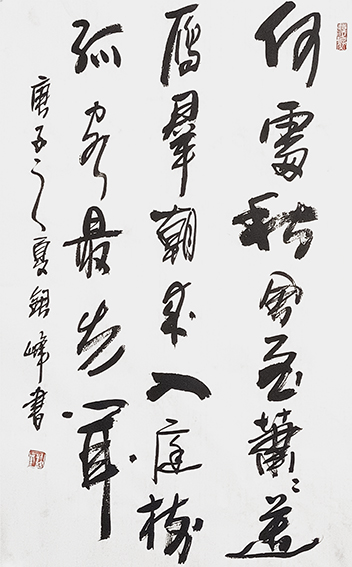 何處秋風至蕭〻送
雁羣朝来入庭樹
孤客最先聞
庚子之夏峰書